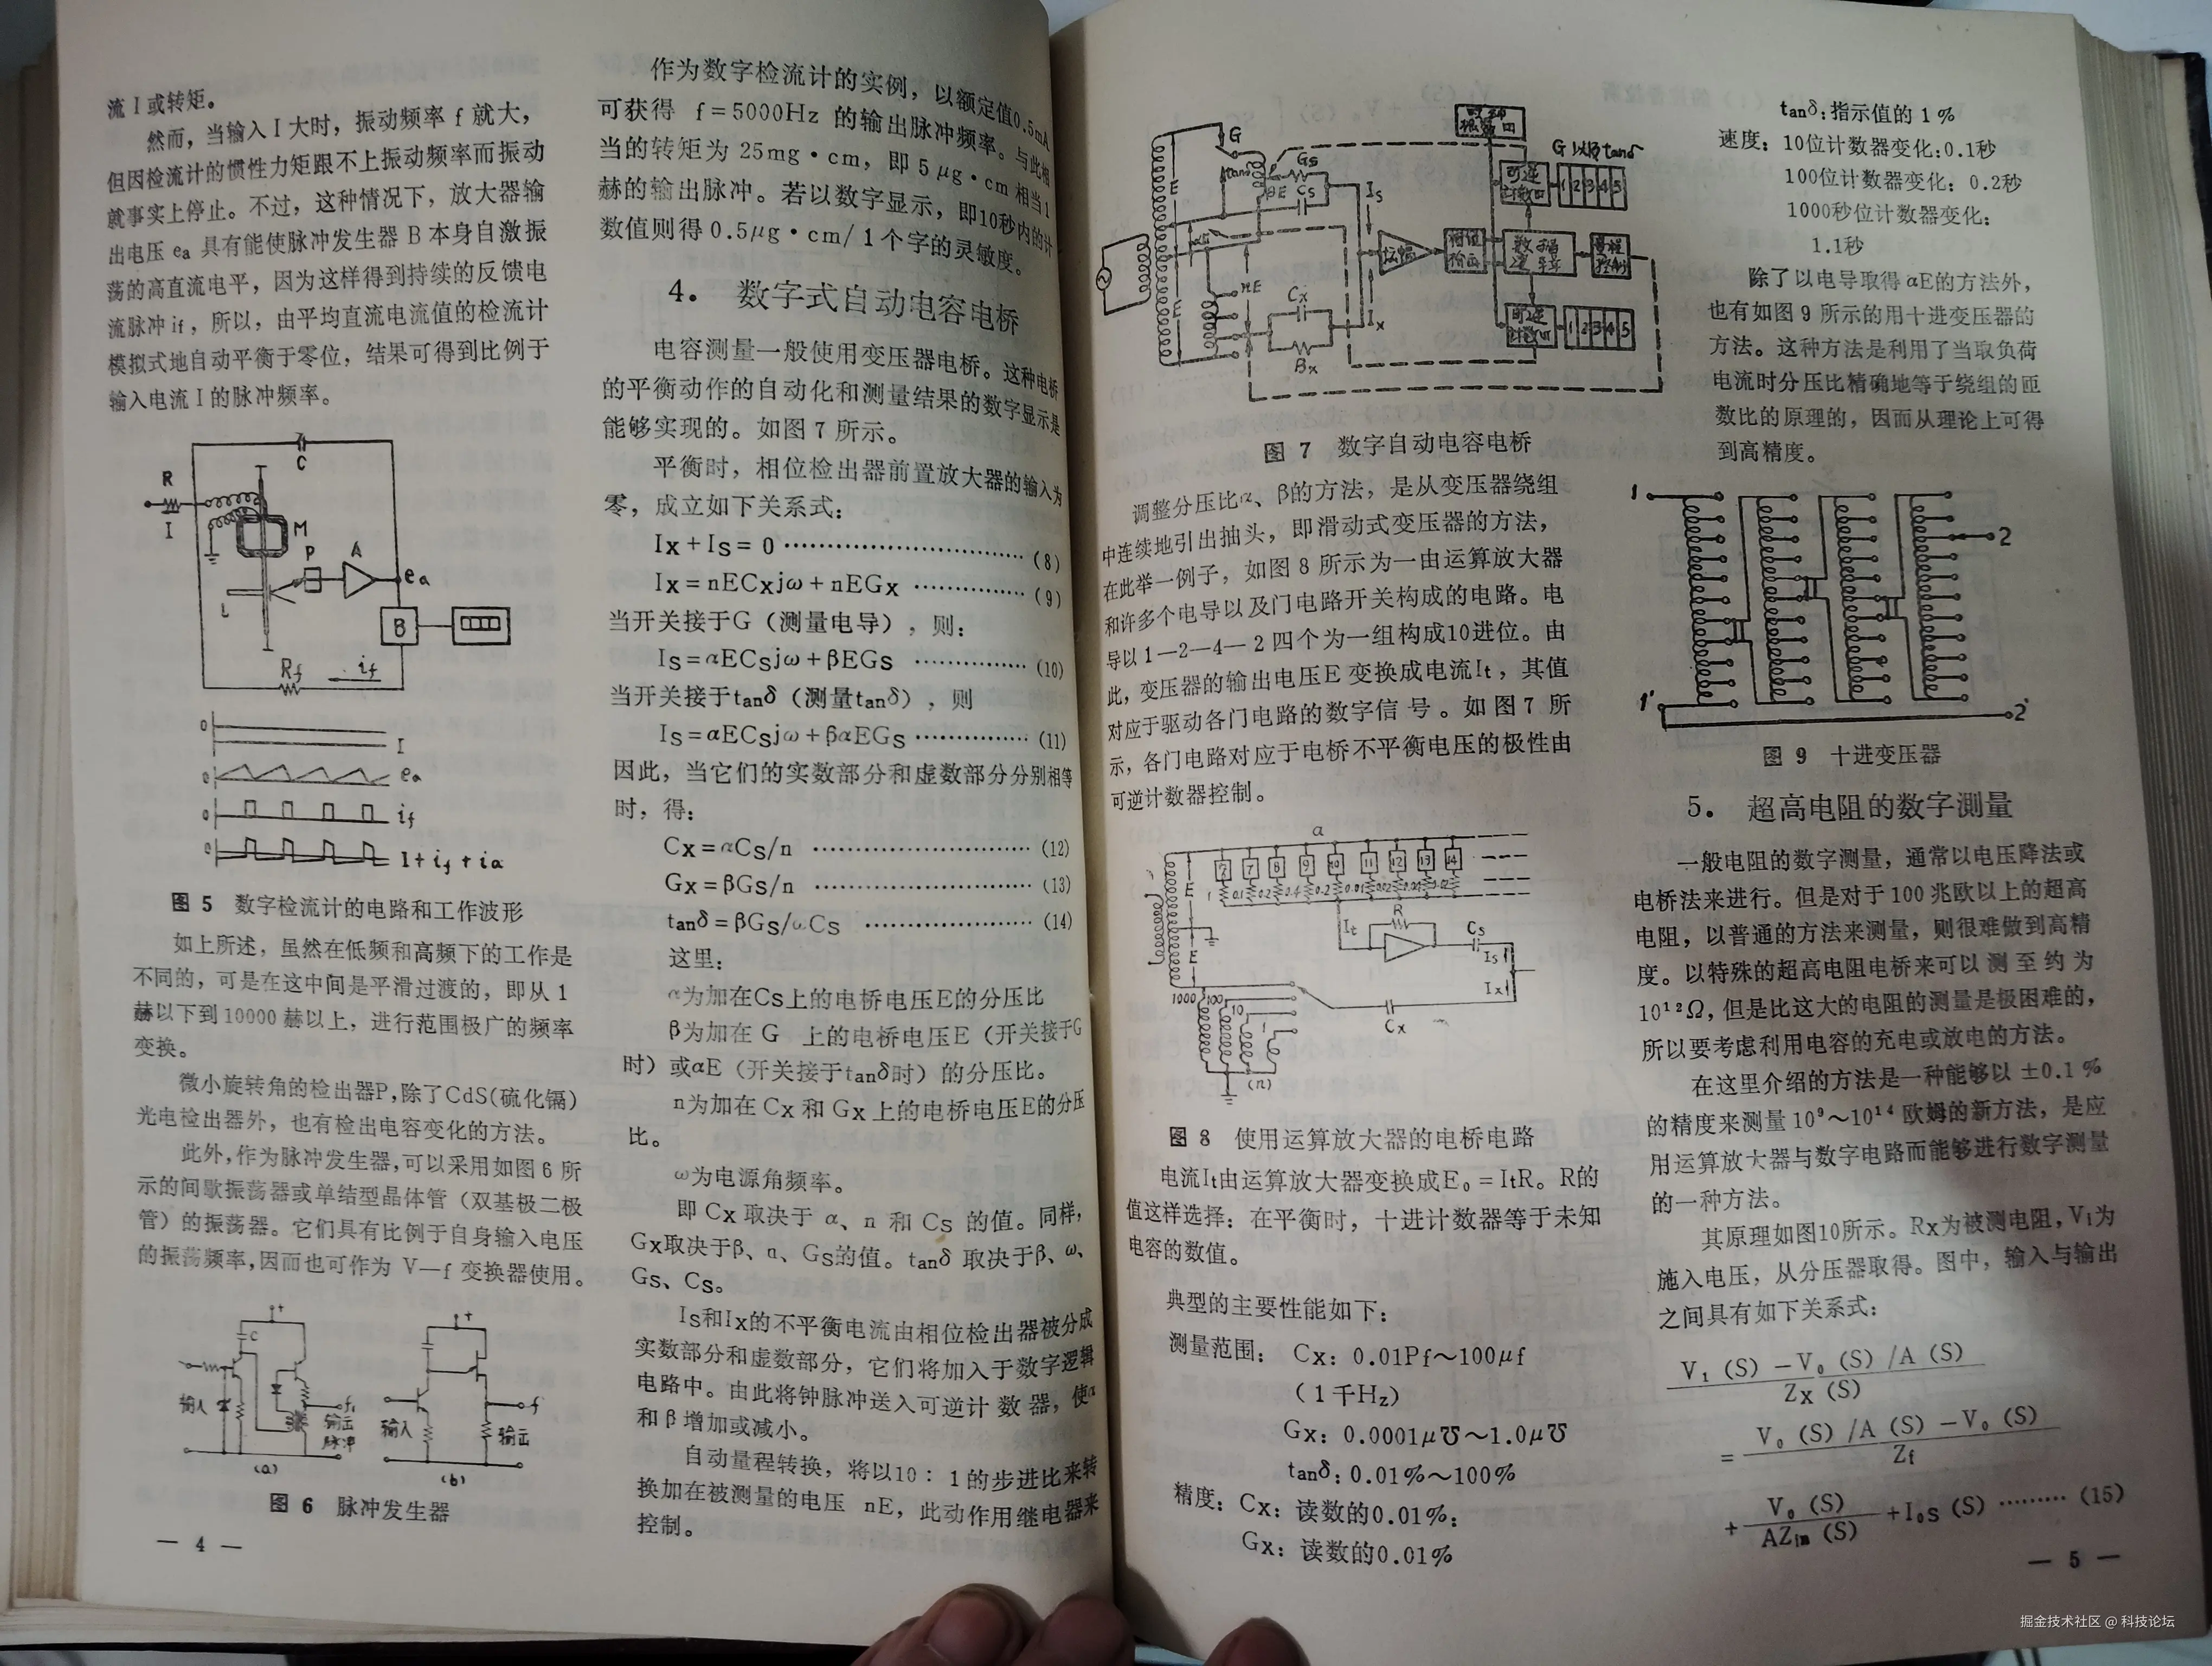 流 I 或转矩。
然而，当输入 I 大时，振动频率 f 就大，
但因检流计的惯性力矩跟不上振动频率而振动
就事实上停止。不过，这种情况下，放大器输
出电压 ea 具有能使脉冲发生器 B 本身自激振
荡的高直流电平，因为这样得到持续的反馈电
流脉冲 if，所以，由平均直流电流值的检流计
模拟式地自动平衡于零位，结果可得到比例于
输入电流 I 的脉冲频率。
C
R
I
M
P
A
ea
L
B
Rf
if
0
I
0
ea
0
if
0
I+if+ia
图 5 数字检流计的电路和工作波形
如上所述，虽然在低频和高频下的工作是
不同的，可是在这中间是平滑过渡的，即从 1
赫以下到10000 赫以上，进行范围极广的频率
变换。
微小旋转角的检出器P，除了CdS(硫化镉)
光电检出器外，也有检出电容变化的方法。
此外，作为脉冲发生器，可以采用如图 6 所
示的间歇振荡器或单结型晶体管（双基极二极
管）的振荡器。它们具有比例于自身输入电压
的振荡频率，因而也可作为 V—f 变换器使用。
C
输入
f
输出
脉冲
(a)
输入
f
输出
(b)
图 6 脉冲发生器
— 4 —
作为数字检流计的实例，以额定值0.5mA
可获得 f=5000Hz 的输出脉冲频率。与此相
当的转矩为 25mg·cm，即 5μg·cm 相当 1
赫的输出脉冲。若以数字显示，即10秒内的计
数值则得 0.5μg·cm/1 个字的灵敏度。
4． 数字式自动电容电桥
电容测量一般使用变压器电桥。这种电桥
的平衡动作的自动化和测量结果的数字显示是
能够实现的。如图 7 所示。
平衡时，相位检出器前置放大器的输入为
零，成立如下关系式：
Ix+Is=0 ………………………… (8)
Ix=nECxjω+nEGx …………… (9)
当开关接于G（测量电导），则：
Is=αECsjω+βEGs …………… (10)
当开关接于tanδ（测量tanδ），则
Is=αECsjω+βαEGs …………… (11)
因此，当它们的实数部分和虚数部分分别相等
时，得：
Cx=αCs/n ………………………… (12)
Gx=βGs/n ………………………… (13)
tanδ=βGs/ωCs ………………… (14)
这里：
α为加在Cs上的电桥电压E的分压比
β为加在 G 上的电桥电压E（开关接于G
时）或αE（开关接于tanδ时）的分压比。
n为加在 Cx 和 Gx 上的电桥电压E的分压
比。
ω为电源角频率。
即 Cx 取决于 α、n 和 Cs 的值。同样，
Gx取决于β、n、Gs的值。tanδ 取决于β、ω、
Gs、Cs。
Is和Ix的不平衡电流由相位检出器被分成
实数部分和虚数部分，它们将加入于数字逻辑
电路中。由此将钟脉冲送入可逆计数器，使α
和 β 增加或减小。
自动量程转换，将以10：1 的步进比来转
换加在被测量的电压 nE，此动作用继电器来
控制。
G
tanδ
E
E
βE
Gs
Cs
Is
nE
Cx
Bx
Ix
G 以及tanδ
可逆
1 2 3 4 5
1 2 3 4 5
图 7 数字自动电容电桥
调整分压比α、β的方法，是从变压器绕组
中连续地引出抽头，即滑动式变压器的方法，
在此举一例子，如图 8 所示为一由运算放大器
和许多个电导以及门电路开关构成的电路。电
导以 1—2—4—2 四个为一组构成10进位。由
此，变压器的输出电压E 变换成电流It，其值
对应于驱动各门电路的数字信号。如图 7 所
示，各门电路对应于电桥不平衡电压的极性由
可逆计数器控制。
α
E
E
It
R
Cs
Is
Ix
Cx
1000
100
10
1
(n)
图 8 使用运算放大器的电桥电路
电流It由运算放大器变换成E₀=ItR。R的
值这样选择：在平衡时，十进计数器等于未知
电容的数值。
典型的主要性能如下：
测量范围： Cx：0.01Pf～100μf
（1千Hz）
Gx：0.0001μ℧～1.0μ℧
tanδ：0.01%～100%
精度：Cx：读数的0.01%；
Gx：读数的0.01%
tanδ：指示值的 1 %
速度：10位计数器变化：0.1秒
100位计数器变化：0.2秒
1000秒位计数器变化：
1.1秒
除了以电导取得 αE的方法外，
也有如图 9 所示的用十进变压器的
方法。这种方法是利用了当取负荷
电流时分压比精确地等于绕组的匝
数比的原理的，因而从理论上可得
到高精度。
1
2
1'
2'
图 9 十进变压器
5． 超高电阻的数字测量
一般电阻的数字测量，通常以电压降法或
电桥法来进行。但是对于 100 兆欧以上的超高
电阻，以普通的方法来测量，则很难做到高精
度。以特殊的超高电阻电桥来可以测至约为
10¹²Ω，但是比这大的电阻的测量是极困难的，
所以要考虑利用电容的充电或放电的方法。
在这里介绍的方法是一种能够以 ±0.1 %
的精度来测量 10⁹～10¹⁴ 欧姆的新方法，是应
用运算放大器与数字电路而能够进行数字测量
的一种方法。
其原理如图10所示。Rx为被测电阻，V₁为
施入电压，从分压器取得。图中，输入与输出
之间具有如下关系式：
V₁ (S) −V₀ (S) /A (S)
Zx (S)
= V₀ (S) /A (S) −V₀ (S)
Zf
+ V₀ (S) / AZin (S) +I₀s (S) ……… (15)
— 5 —
掘金技术社区 @ 科技论坛